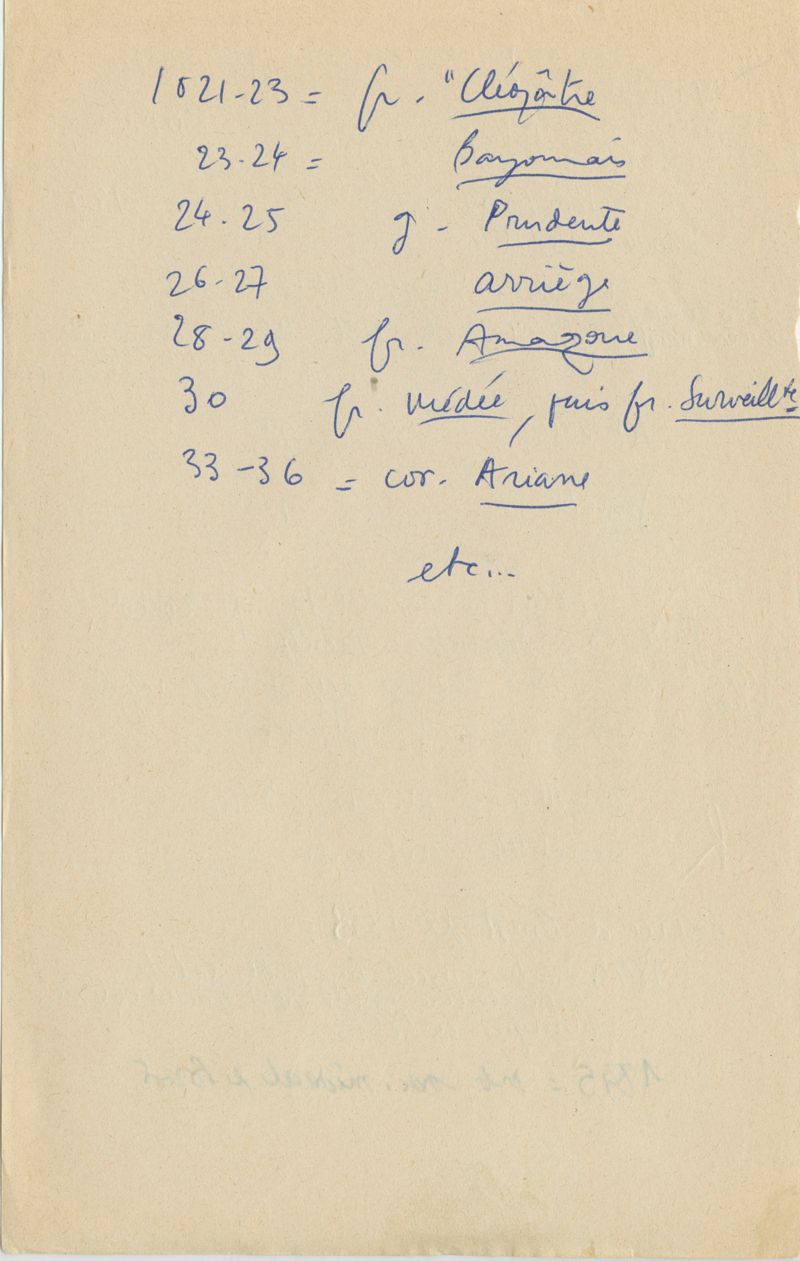 1821-23 = fr. "Cléopâtre
23-24 = Bayonnais
24-25 g. Prudente
26-27 Arriège
28-29 fr. Amazone
30 fr. Médée, puis fr. Surveillte
33-36 = cor. Ariane
etc...